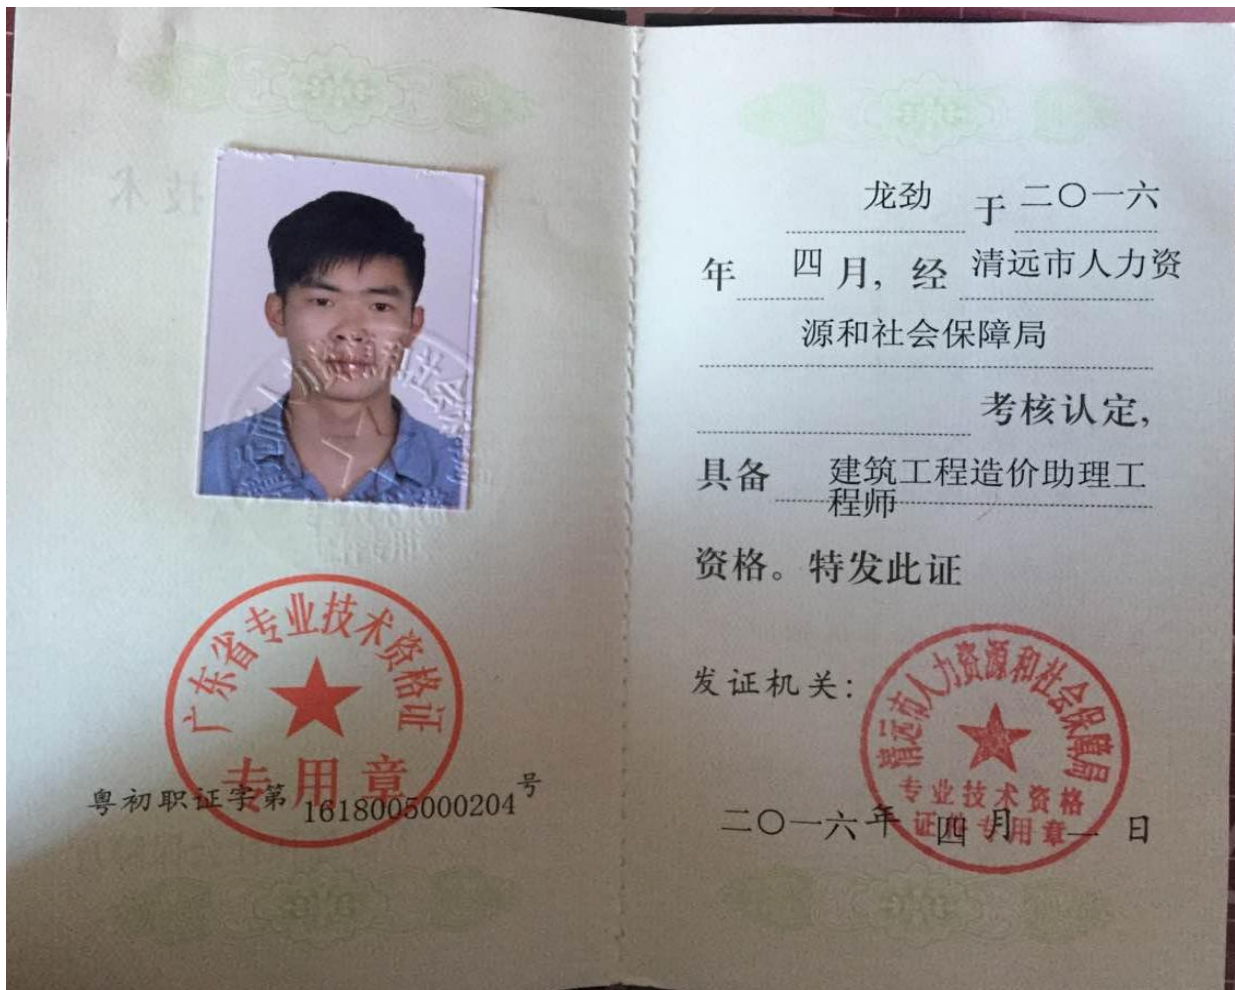 广东省专业技术资格证
专用章
粤初职证字第1618005000204号
龙劲 于 二〇一六
年 四 月，经 清远市人力资
源和社会保障局
考核认定，
具备 建筑工程造价助理工
程师
资格。特发此证
发证机关：
清远市人力资源和社会保障局
专业技术资格
证件专用章
二〇一六年 四 月 一 日